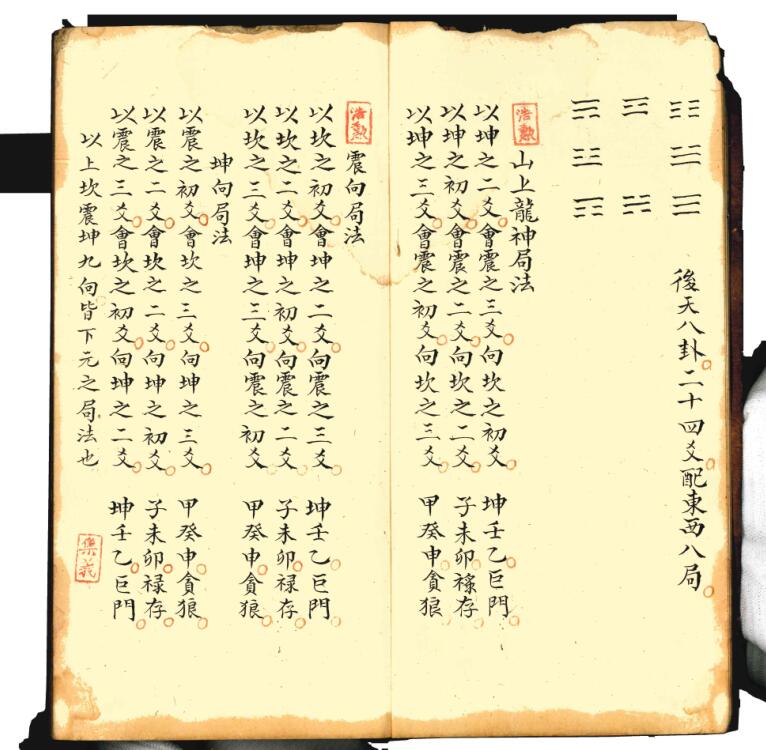 後天八卦二十四爻配東西八局
浩勳
山上龍神局法
以坤之二爻會震之三爻向坎之初爻 坤壬乙巨門
以坤之初爻會震之二爻向坎之二爻 子未卯祿存
以坤之三爻會震之初爻向坎之三爻 甲癸申貪狼
浩勳
震向局法
以坎之初爻會坤之二爻向震之三爻 坤壬乙巨門
以坎之二爻會坤之初爻向震之二爻 子未卯禄存
以坎之三爻會坤之三爻向震之初爻 甲癸申貪狼
坤向局法
以震之初爻會坎之三爻向坤之三爻 甲癸申貪狼
以震之二爻會坎之二爻向坤之初爻 子未卯禄存
以震之三爻會坎之初爻向坤之二爻 坤壬乙巨門
以上坎震坤九向皆下元之局法也
集義